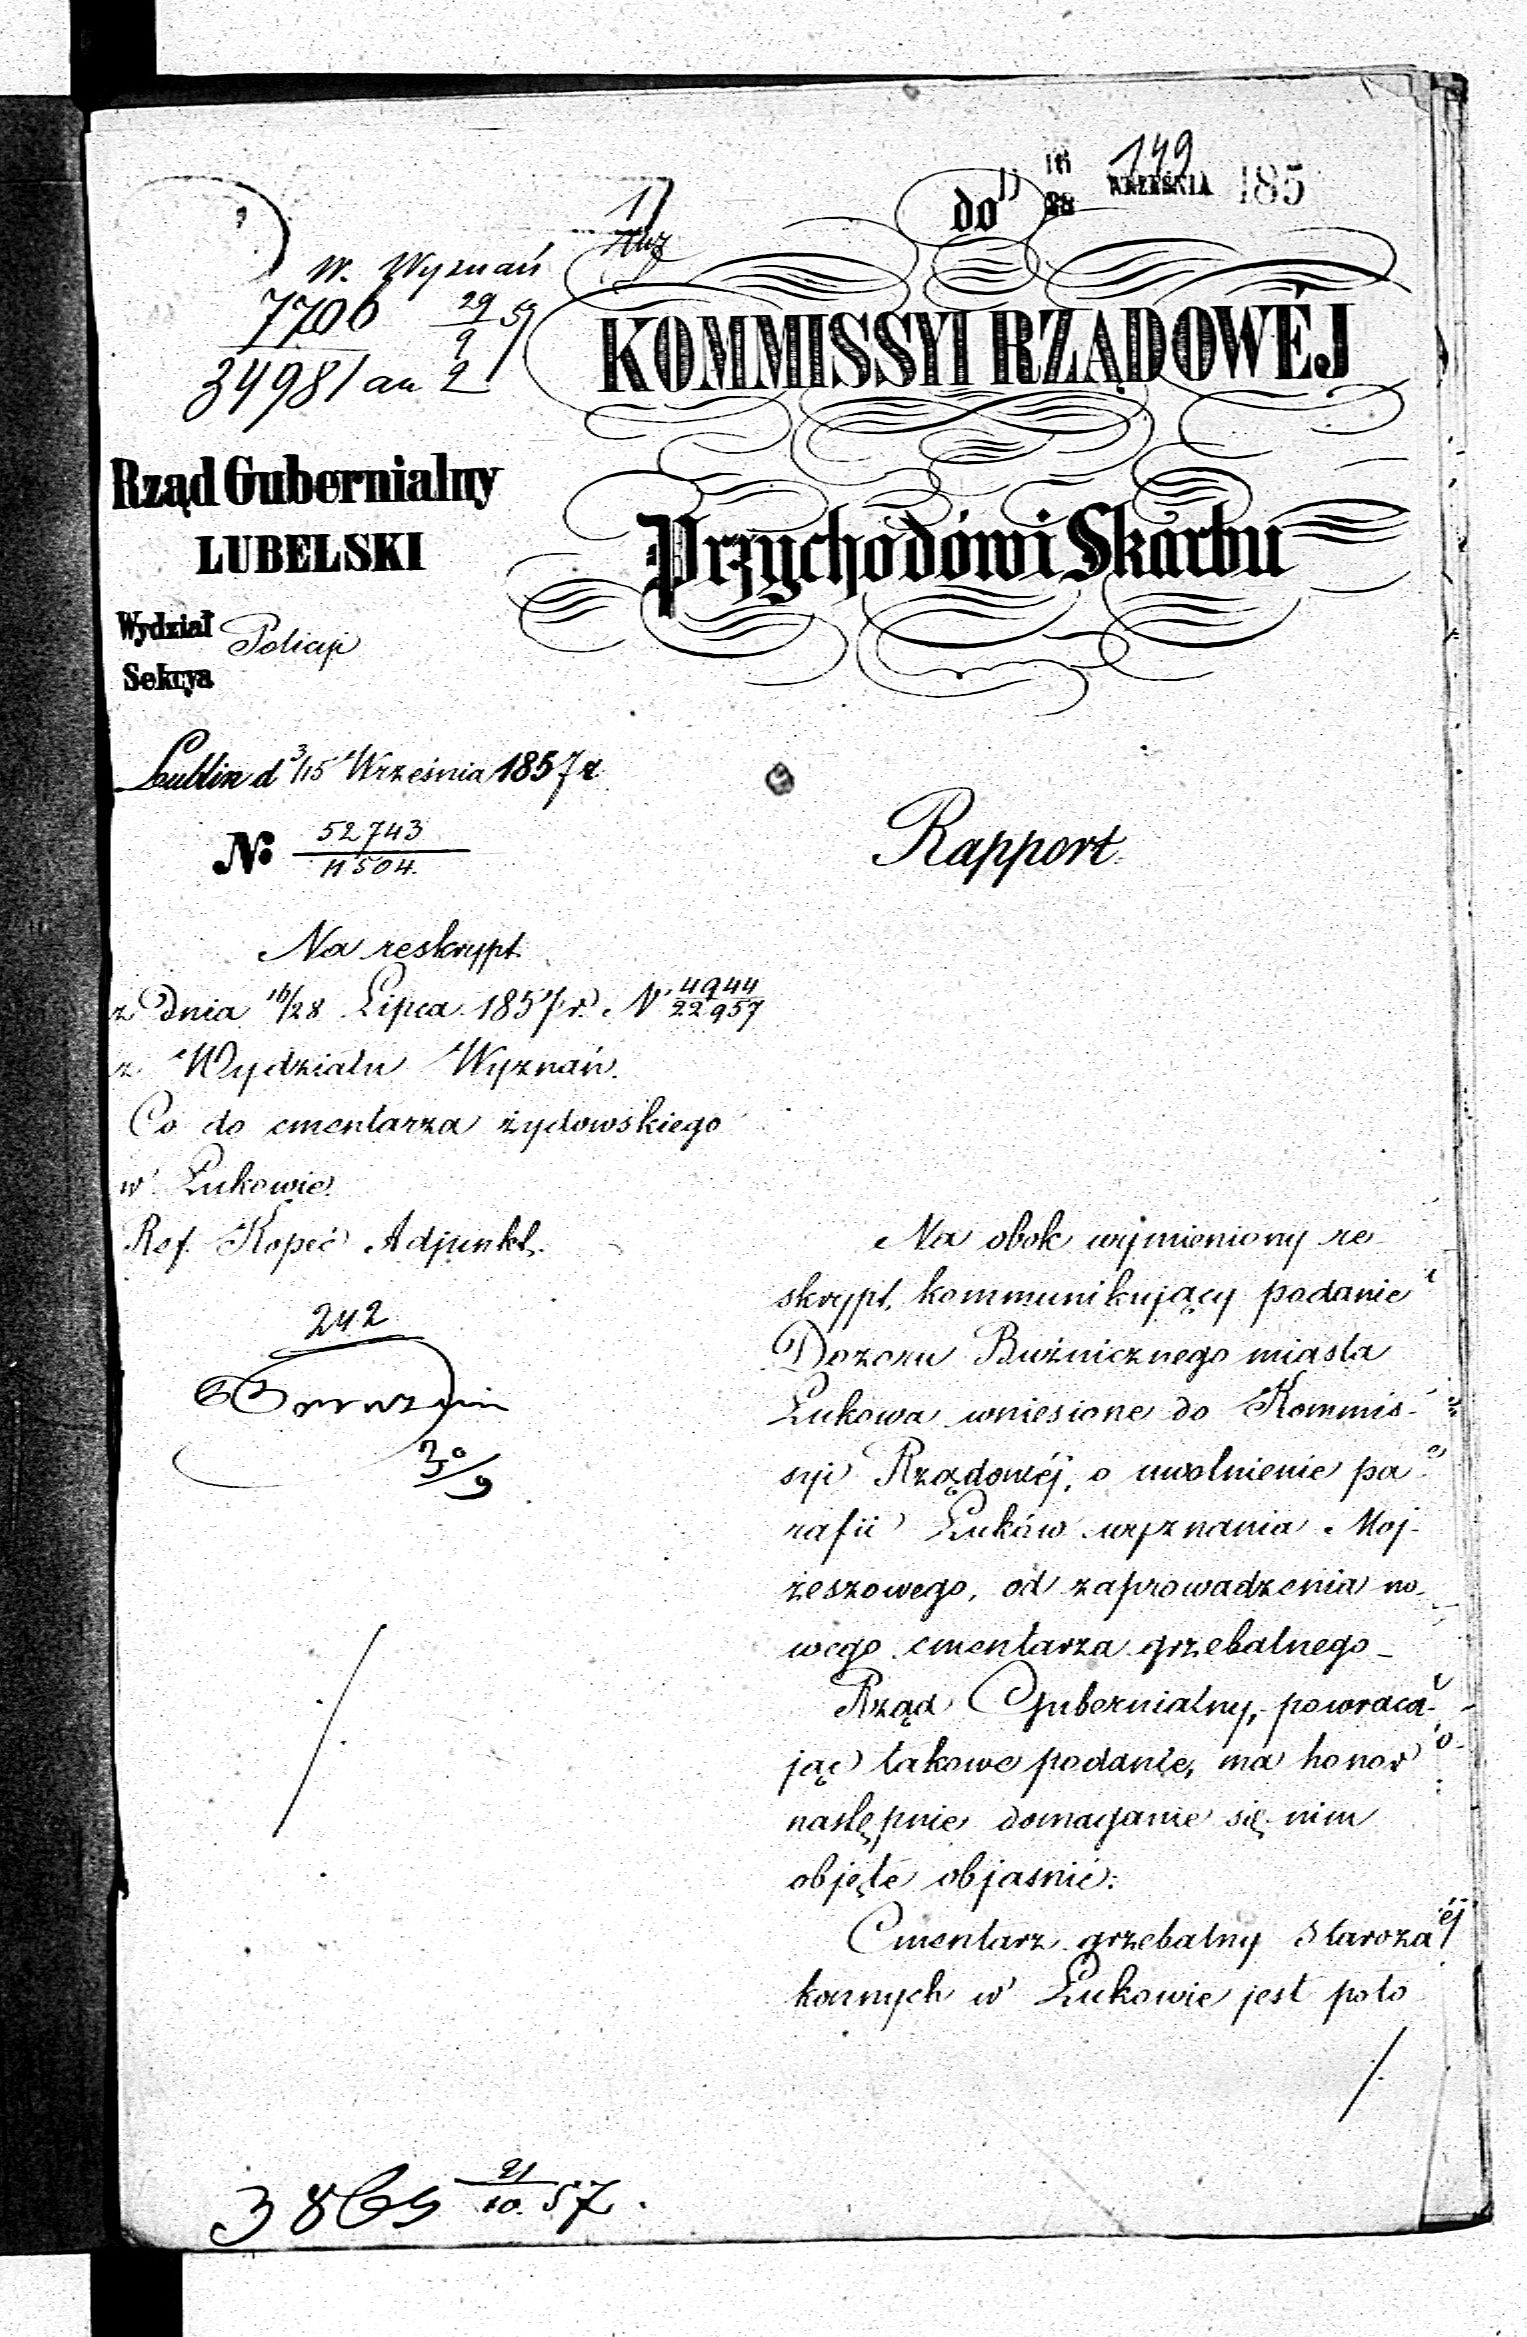 149
do
16
28
WRZEŚNIA 185
W. Wyznań
7706 29/9 57
34981 an 2
KOMMISSYI RZĄDOWÉJ
Przychodów i Skarbu
Rząd Gubernialny
LUBELSKI
Wydział Policyi
Sekcya
Lublin d 3/15 Września 1857 r.
No 52743
11504.
Rapport.
Na reskrypt
z Dnia 16/28 Lipca 1857 r. N 4944/22957
z Wydziału Wyznań.
Co do cmentarza żydowskiego
w Łukowie.
Ref. Kopeć Adjunkt.
242
30/9
Na obok wymieniony re
skrypt, kommunikujący podanie
Dozoru Bużnicznego miasta
Łukowa wniesione do Kommis-
syi Rządowéj, o uwolnienie pa
rafii Łuków wyznania Moj-
żeszowego, od zaprowadzenia no-
wego cmentarza grzebalnego
Rząd Gubernialny, powraca-
jąc takowe podanie, ma honor
następnie domaganie się nim
objęte objasnić:
Cmentarz grzebalny Staroza
konnych w Łukowie jest poło
3865 21/10 57.